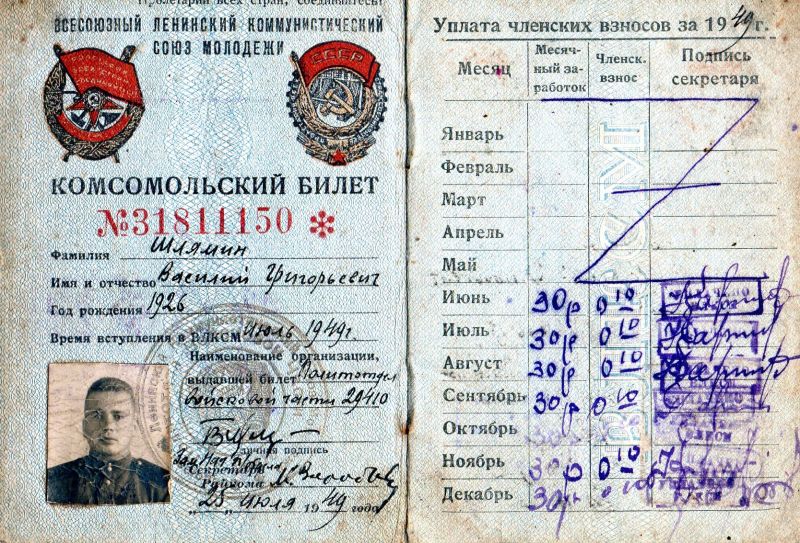 Пролетарии всех стран, соединяйтесь!
ВСЕСОЮЗНЫЙ ЛЕНИНСКИЙ КОММУНИСТИЧЕСКИЙ
СОЮЗ МОЛОДЕЖИ
СССР
КОМСОМОЛЬСКИЙ БИЛЕТ
№31811150 *
Фамилия Шлямин
Имя и отчество Василий Григорьевич
Год рождения 1926
Время вступления в ВЛКСМ Июль 1949г.
Наименование организации,
выдавшей билет Политотдел
войсковой части 29410
Личная подпись
Секретарь
Райкома
"25" июля 1949 года
Уплата членских взносов за 1949 г.
Месяц Месяч-ный за-работок Членск. взнос Подпись секретаря
Январь
Февраль
Март
Апрель
Май
Июнь 30р 0 10
Июль 30р 0 10
Август 30р 0 10
Сентябрь 30р 0 10
Октябрь 30р
Ноябрь 30р 0 10
Декабрь 30р